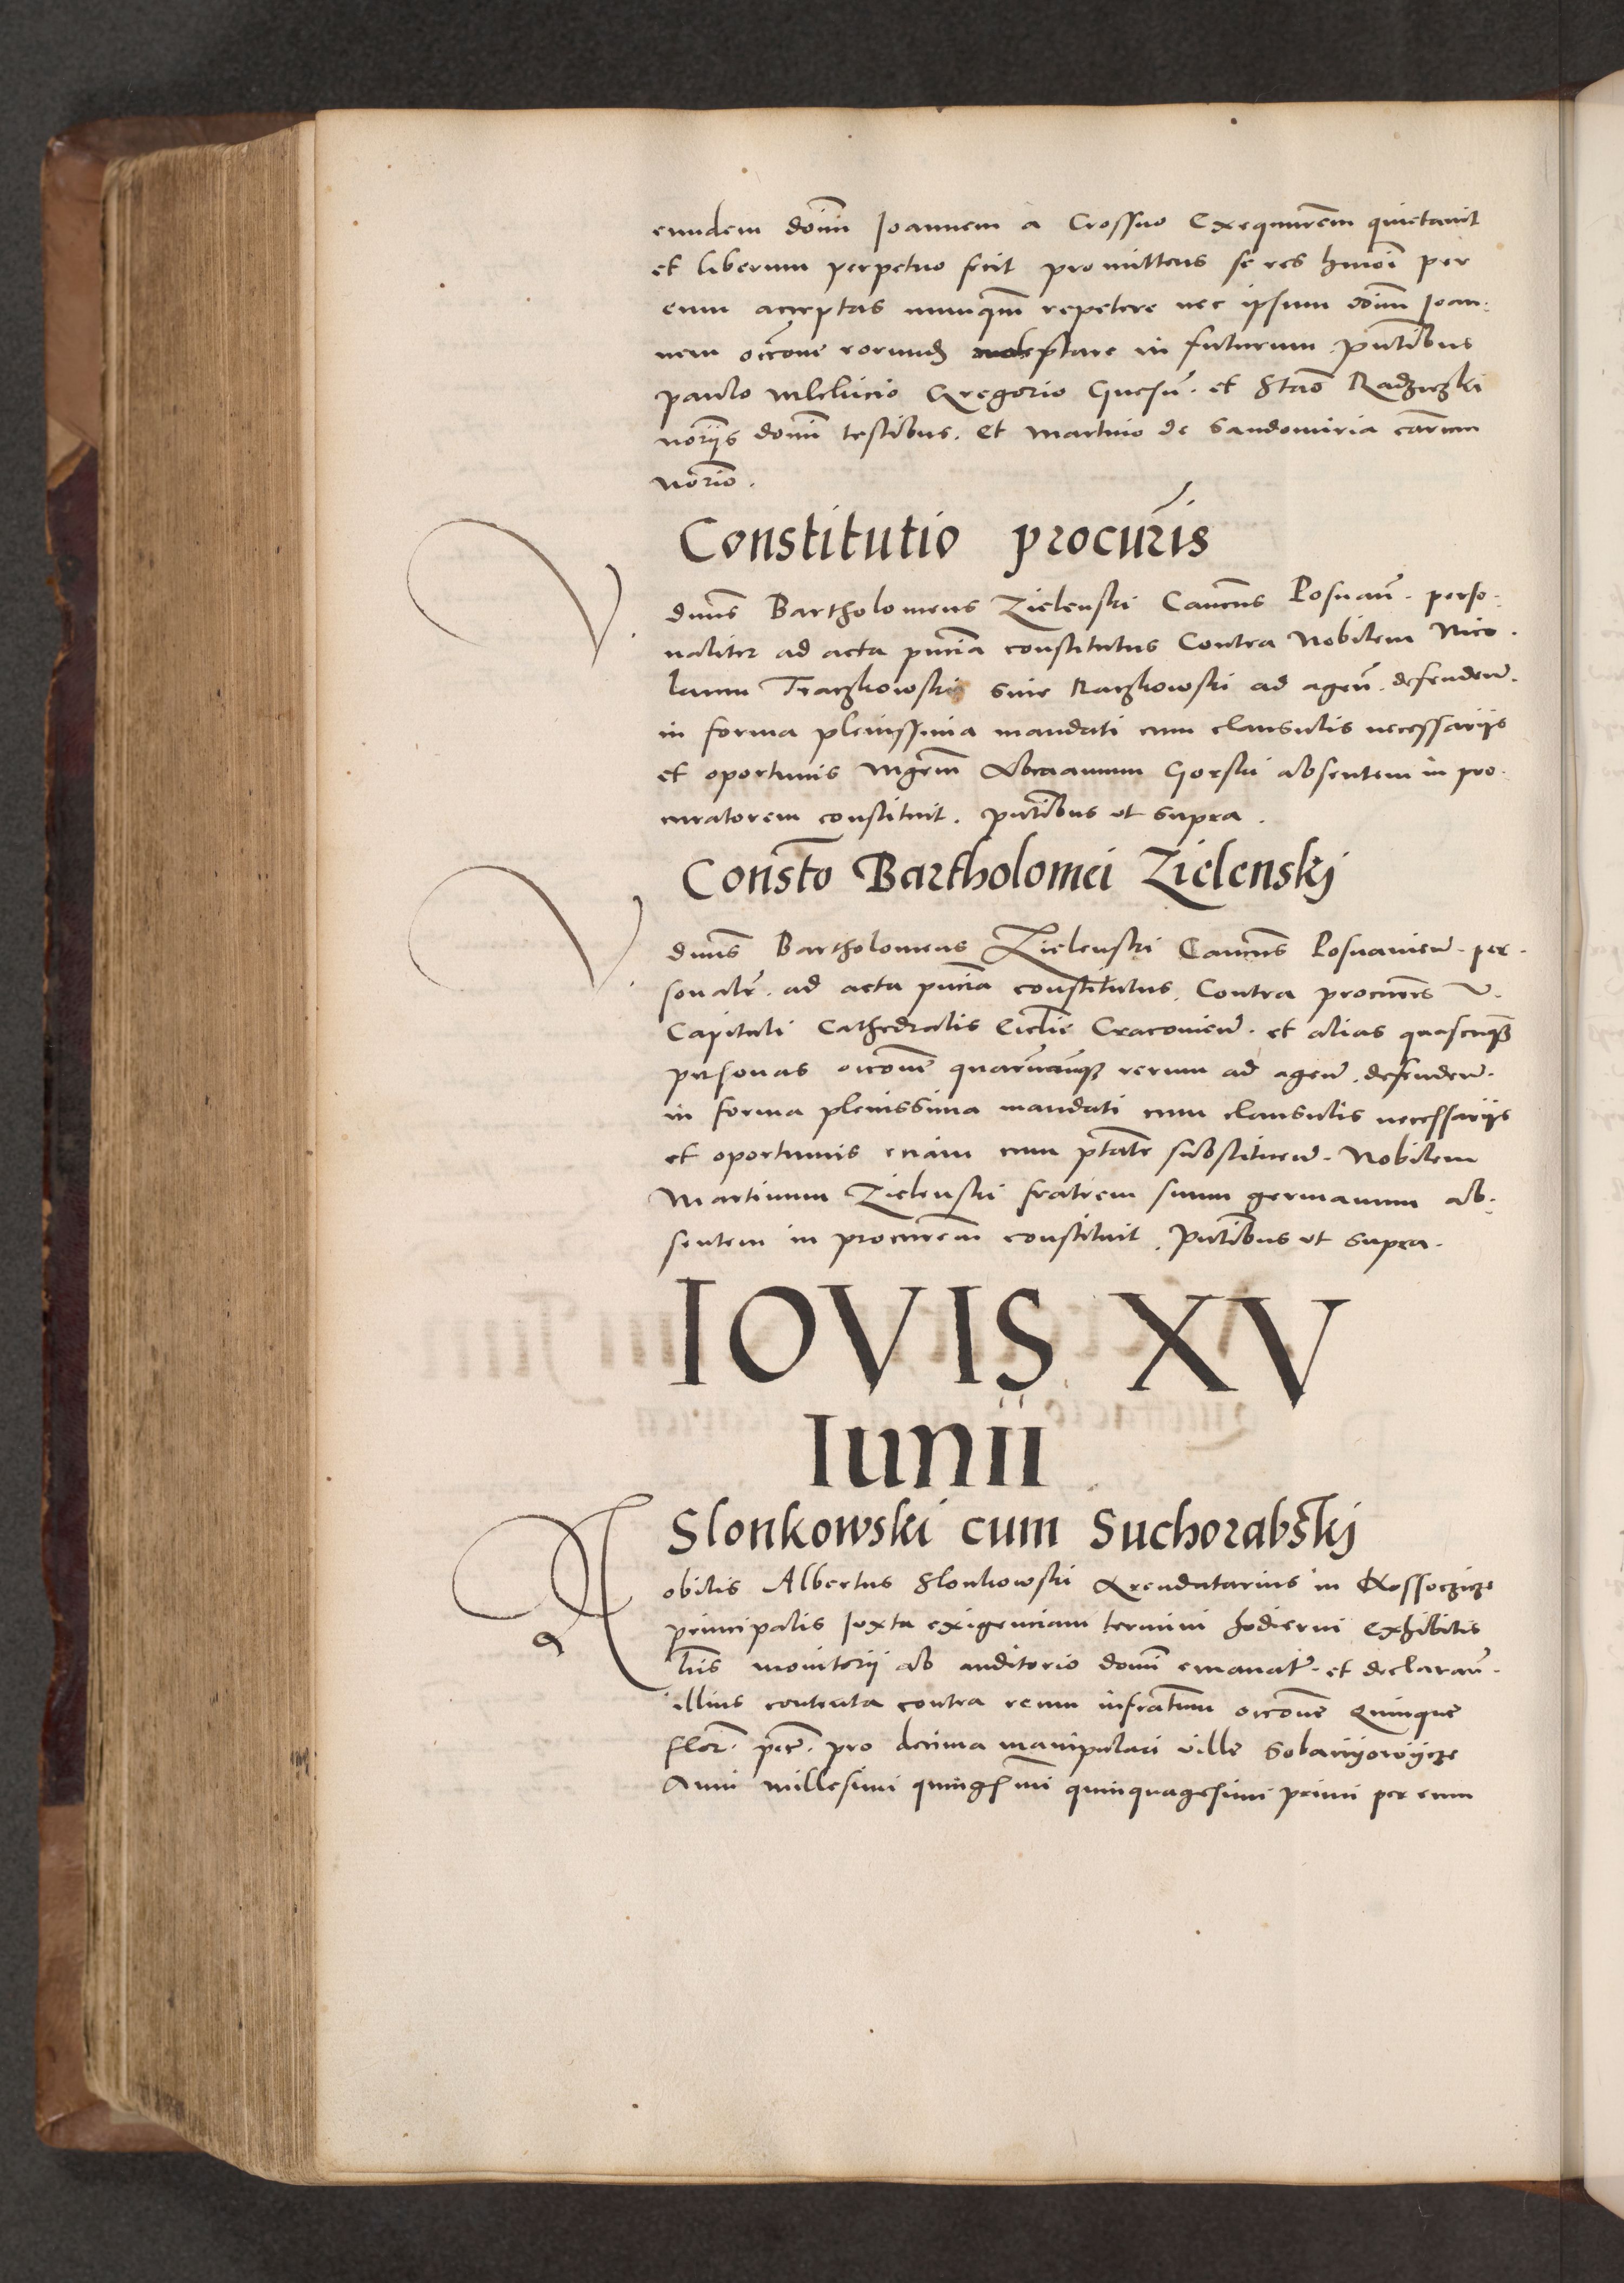 eundem dom̄ Joannem a Crossno Exequutorem̄ quietavit
et liberum perpetuo fecit promittens se res hmōi per
eum acceptas nunqm̄ repetere nec ipsum dom̄ Joan-
nem occ̄one eorund molestare in futurum. pn̄tibus
paulo Gregorio Gnesn̄. et Stao Radziczki
nōriis dom̄ testibus. Et Martino de Sandomiria carum
nōrio.
Constitutio procur̄is
V. dnn̄s Bartholomeus Zielenski Cancn̄s Posnan̄. perso-
naliter ad acta pn̄cia constitutus Contra Nobilem Nico-
laum Traczkowski sive Raczkowski ad agen̄. defenden̄.
in forma plenissima mandati cum clausulis necessariis
et oportunis Mgrm̄ Abraamum Gorski absentem in pro-
curatorem constituit. pn̄tibus ut supra.
Consto Bartholomei Zielenskj
V. dnn̄s Bartholomeus Zielenski Cancn̄s Posnanien̄. per-
sonalr̄. ad acta pn̄cia constitutus. Contra procures V.
Capituli Cathedralis Ecclie Cracovien̄. et alias quascunqz
personas occ̄one quarumcunqz rerum ad agen̄. defenden̄.
in forma plenissima mandati cum clausulis necessariis
et oportunis eciam cum ptāte substituen̄. Nobilem
Martinum Zielenski fratrem suum germanum ab-
sentem in procurem̄ constituit. Pn̄tibus ut supra.
IOVIS XV
Iunii
Slonkowski cum Suchorabskj
N obilis Albertus Slonkowski Arendatarius in
principalis Juxta exigenciam termini hodierni exhibitis
lrīs monitorii ab auditorio dom̄ emanat̄. et declaran̄.
illius contenta contra reum infrāctum occ̄one Quinque
flor̄. pec̄. pro decima manipulari ville
Anni millesimi quingēmi quinquagesimi primi per eum